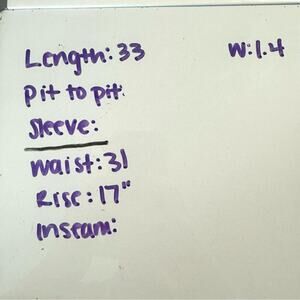 Length: 33
W: 1.4
Pit to pit:
Sleeve:
Waist: 31
Rise: 17"
Inseam: